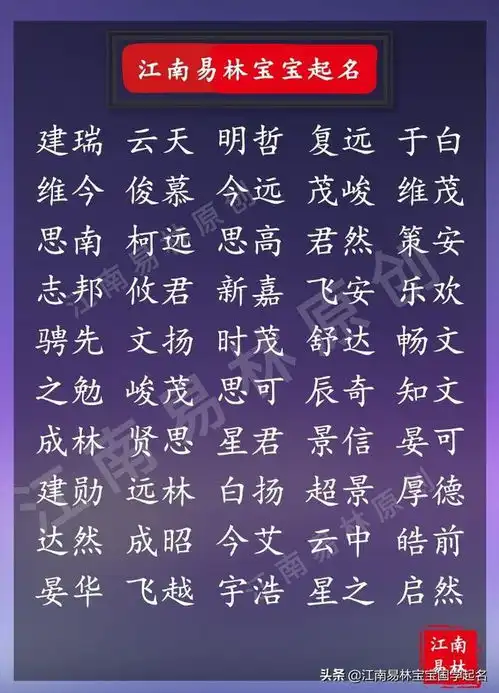 江南易林宝宝起名
建瑞 云天 明哲 复远 于白
维今 俊慕 今远 茂峻 维茂
思南 柯远 思高 君然 策安
志邦 攸君 新嘉 飞安 乐欢
骋先 文扬 时茂 舒达 畅文
之勉 峻茂 思可 辰奇 知文
成林 贤思 星君 景信 晏可
建勋 远林 白扬 超景 厚德
达然 成昭 今艾 云中 皓前
晏华 飞越 宇浩 星之 启然
江南易林原创
江南易林原创
江南易林原创
江南
易林
头条 @江南易林宝宝国学起名